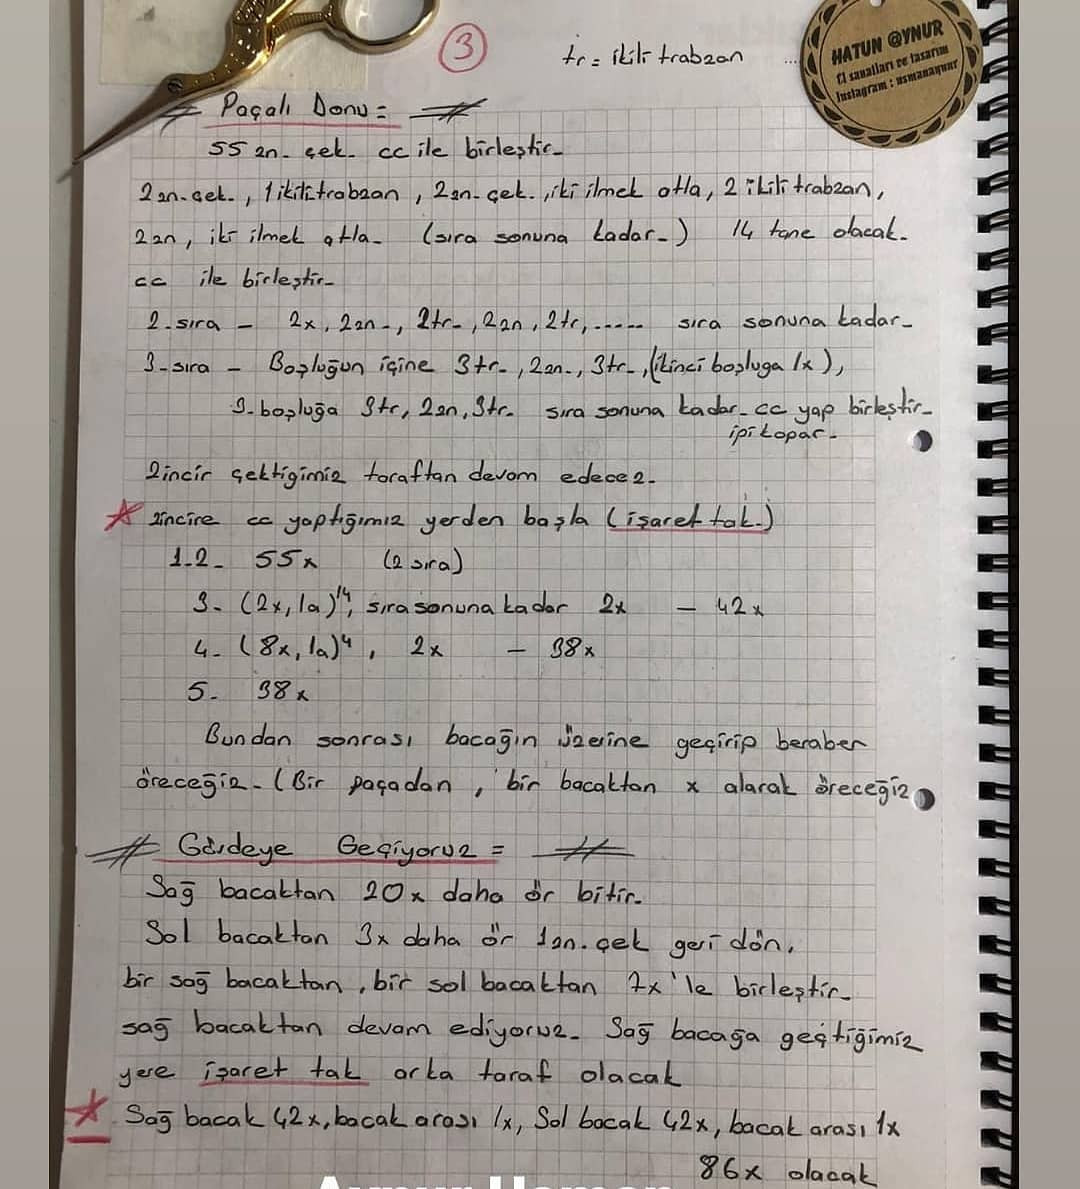 3
tr = ikili trabzan
HATUN @YNUR
El sanatları ve tasarım
Instagram : usmanaynur
Paçalı Donu =
55 zn. çek. cc ile birleştir.
2 zn. çek., 1 ikili trabzan, 2 zn. çek., iki ilmek atla, 2 ikili trabzan,
2 zn, iki ilmek atla. (sıra sonuna kadar.) 14 tane olacak.
cc ile birleştir.
2. sıra - 2x, 2zn., 2tr., 2zn, 2tr, ..... sıra sonuna kadar.
3. sıra - Boşluğun içine 3tr., 2zn., 3tr., (ikinci boşluga 1x),
3. boşluğa 3tr, 2zn, 3tr. sıra sonuna kadar. cc yap birleştir.
ipi kopar.
Zincir çektigimiz taraftan devam edecez.
zincire cc yaptığımız yerden başla (işaret tak.)
1.2. 55x (2 sıra)
3. (2x, 1a)14, sıra sonuna kadar 2x - 42x
4. (8x, 1a)4, 2x - 38x
5. 38x
Bundan sonrası bacağın üzerine geçirip beraber
öreceğiz. (Bir paçadan, bir bacaktan x alarak öreceğiz
Gövdeye Geçiyoruz =
Sağ bacaktan 20x daha ör bitir.
Sol bacaktan 3x daha ör 1zn. çek geri dön,
bir sağ bacaktan, bir sol bacaktan 7x'le birleştir.
sağ bacaktan devam ediyoruz. Sağ bacağa geçtiğimiz
yere işaret tak arka taraf olacak
Sağ bacak 42x, bacak arası 1x, Sol bacak 42x, bacak arası 1x
86x olacak